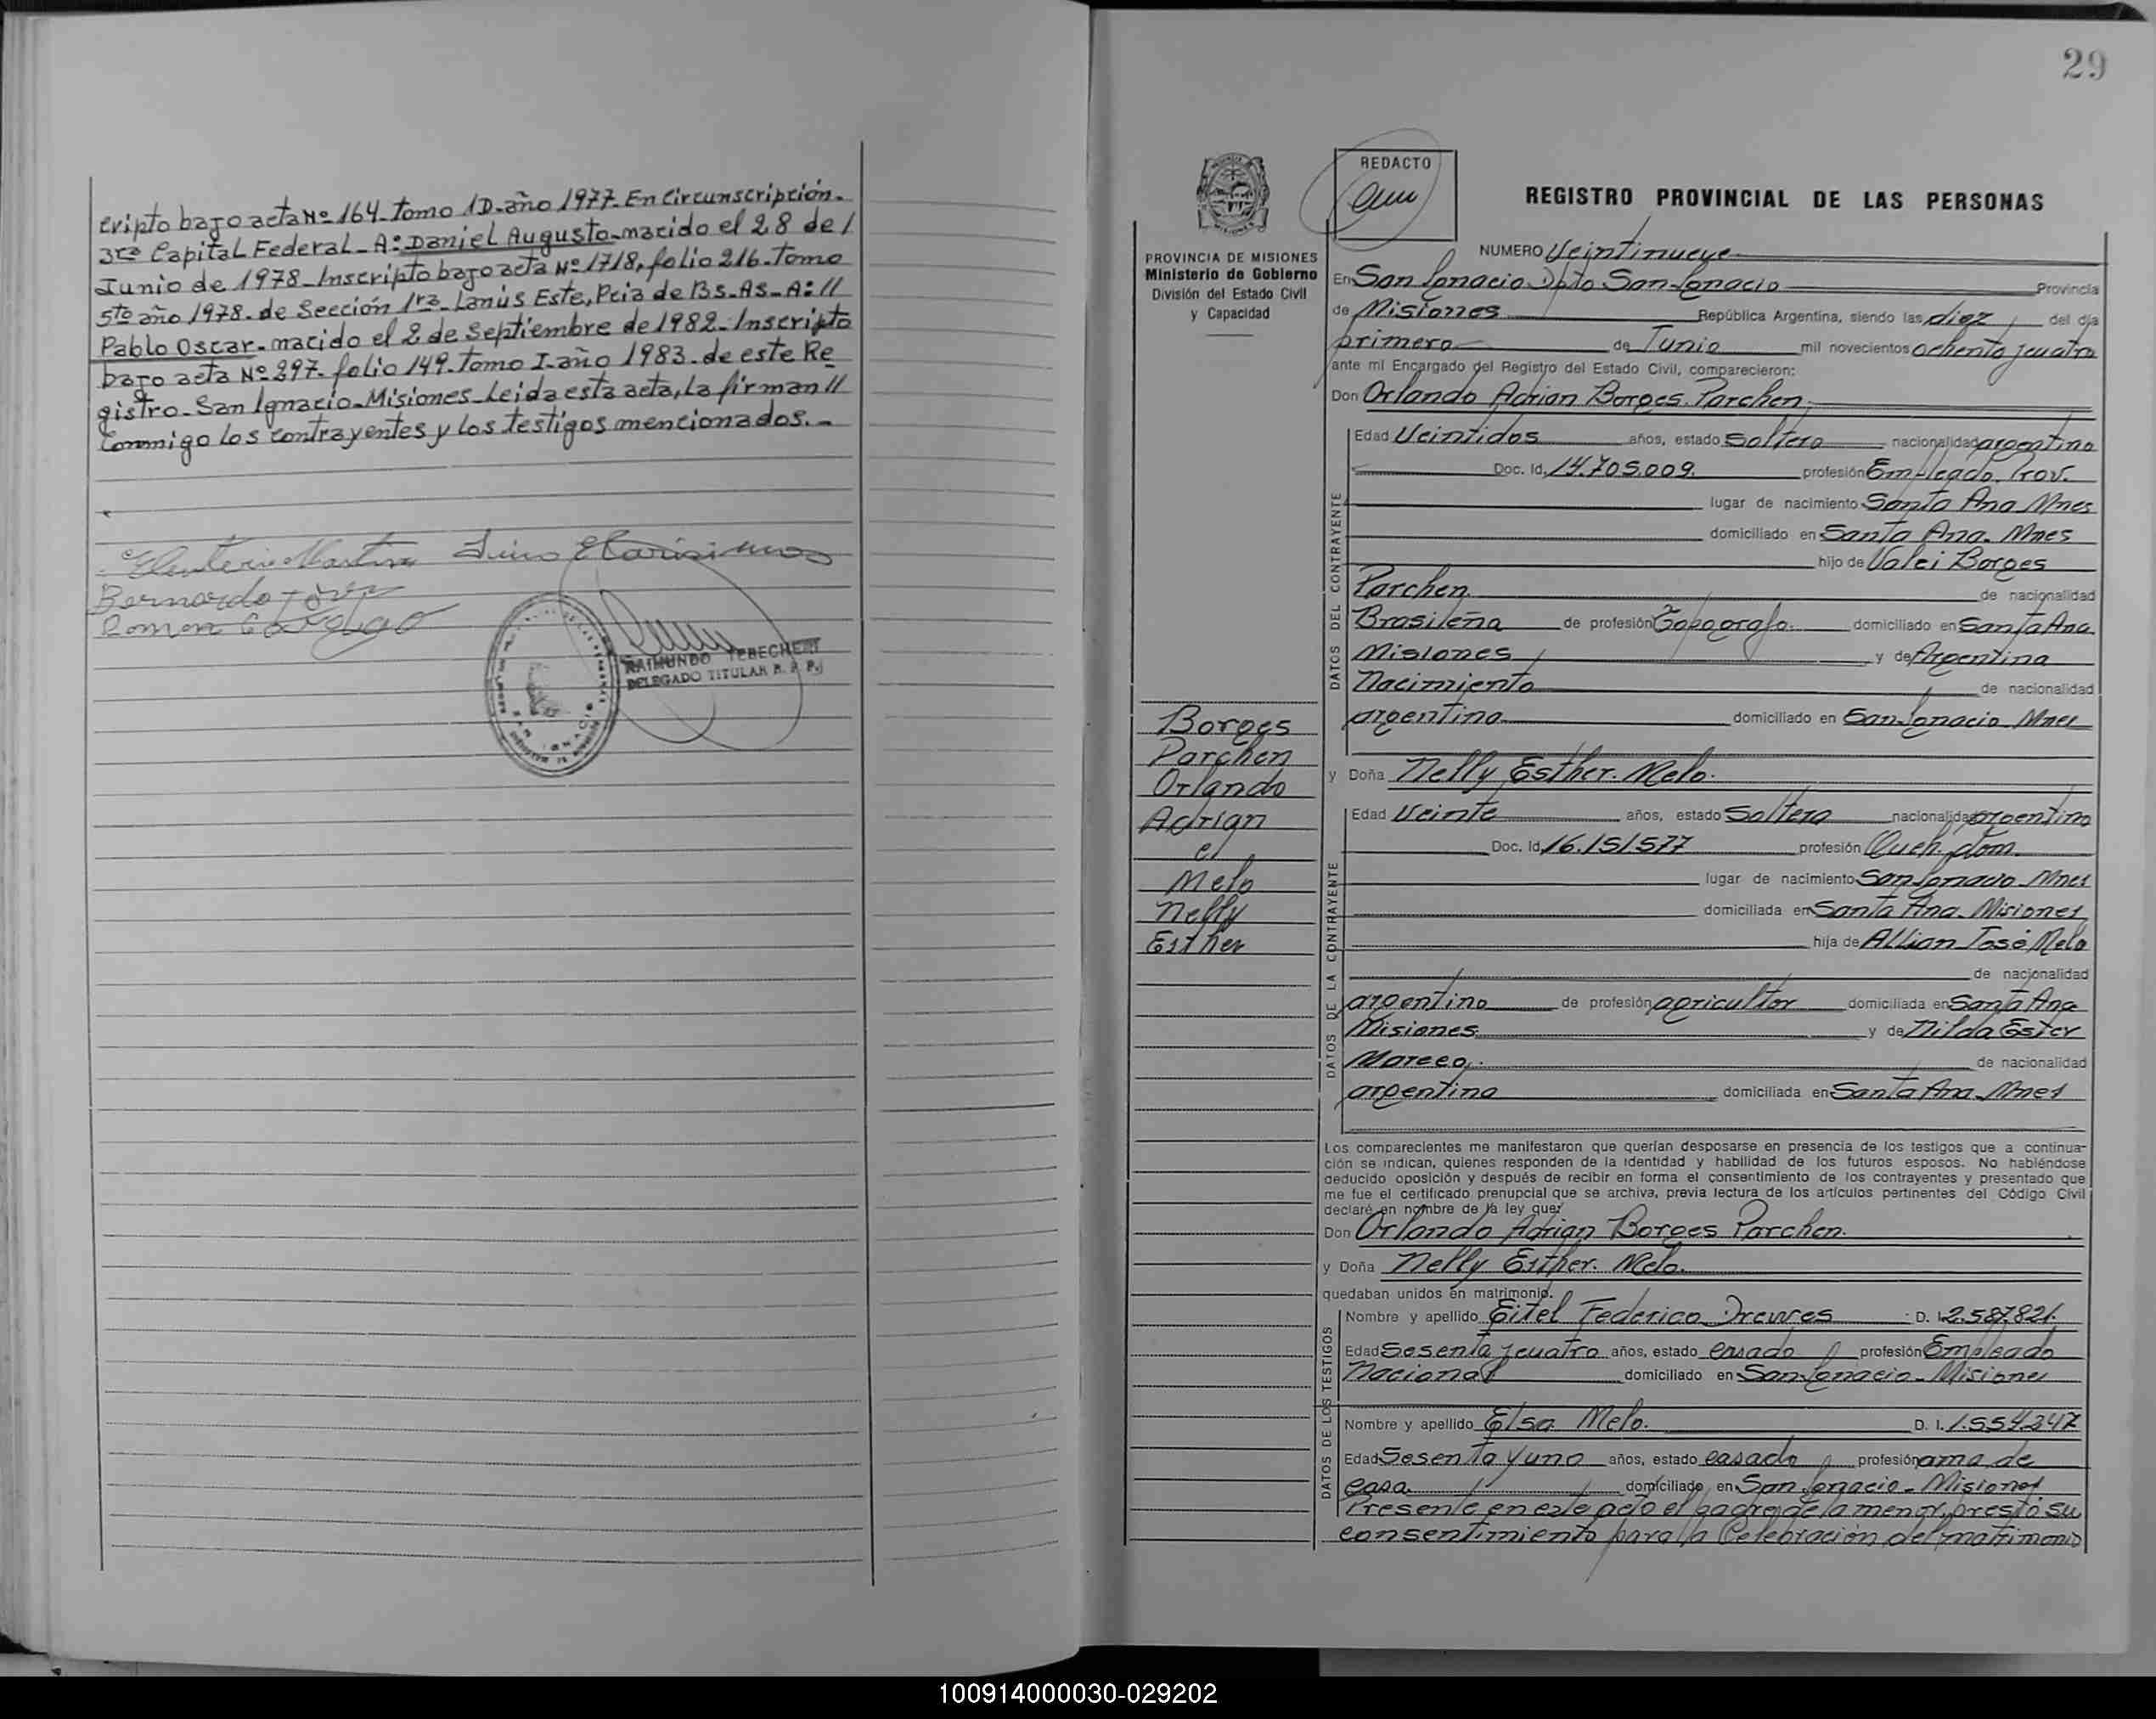 cripto bajo acta Nº 164 - tomo 1D - año 1977. En Circunscripción -
3ra Capital Federal - A: Daniel Augusto - nacido el 28 de /
Junio de 1978 - Inscripto bajo acta Nº 1718, folio 216 - Tomo
5to año 1978 - de Sección 1ra - Lanús Este, Pcia de Bs - As - A: //
Pablo Oscar - nacido el 2 de Septiembre de 1982 - Inscripto
bajo acta Nº 297 - folio 149 - Tomo I - año 1983 - de este Re
gistro - San Ignacio - Misiones - Leida esta acta, la firman //
Conmigo los contrayentes y los testigos mencionados. -
RAIMUNDO TEBECHERI
DELEGADO TITULAR R. P. P.
29
REDACTO
REGISTRO PROVINCIAL DE LAS PERSONAS
PROVINCIA DE MISIONES
Ministerio de Gobierno
División del Estado Civil
y Capacidad
NUMERO Veintinueve
En San Ignacio Dpto San Ignacio Provincia
de Misiones República Argentina, siendo las diez del día
primero de Junio mil novecientos ochenta y cuatro
ante mi Encargado del Registro del Estado Civil, comparecieron:
Don Orlando Adrian Borges Parchen.
DATOS DEL CONTRAYENTE
Edad Veintidos años, estado Soltero nacionalidad argentina
Doc. Id. 14.705.009. profesión Empleado. Prov.
lugar de nacimiento Santa Ana Mnes
domiciliado en Santa Ana. Mnes
hijo de Valei Borges
Parchen de nacionalidad
Brasileña de profesión Topografo. domiciliado en Santa Ana
Misiones y de Argentina
Nacimiento de nacionalidad
argentina domiciliado en San Ignacio Mnes
Borges
Parchen
Orlando
Adrian
c/
Melo
Nelly
Esther
y Doña Nelly Esther. Melo.
DATOS DE LA CONTRAYENTE
Edad Veinte años, estado Soltera nacionalidad argentina
Doc. Id. 16.151577 profesión Queh. dom.
lugar de nacimiento San Ignacio Mnes
domiciliada en Santa Ana. Misiones
hija de Allian José Melo
de nacionalidad
argentino de profesión agricultor domiciliada en Santa Ana
Misiones y de Nilda Ester
Mareco. de nacionalidad
argentina domiciliada en Santa Ana Mnes
Los comparecientes me manifestaron que querían desposarse en presencia de los testigos que a continua-
ción se indican, quienes responden de la identidad y habilidad de los futuros esposos. No habiéndose
deducido oposición y después de recibir en forma el consentimiento de los contrayentes y presentado que
me fue el certificado prenupcial que se archiva, previa lectura de los artículos pertinentes del Código Civil
declaré en nombre de la ley que:
Don Orlando Adrian Borges Parchen.
y Doña Nelly Esther. Melo.
quedaban unidos en matrimonio.
DATOS DE LOS TESTIGOS
Nombre y apellido Eitel Federico Drewes D. I. 2.587.821.
Edad Sesenta y cuatro años, estado casado profesión Empleado
Nacional domiciliado en San Ignacio - Misiones
Nombre y apellido Elsa Melo. D. I. 1.554.247
Edad Sesenta y uno años, estado casada profesión ama de
casa. domiciliado en San Ignacio - Misiones
Presente en este acto el padre de la menor, prestó su
consentimiento para la Celebración del matrimonio
100914000030-029202